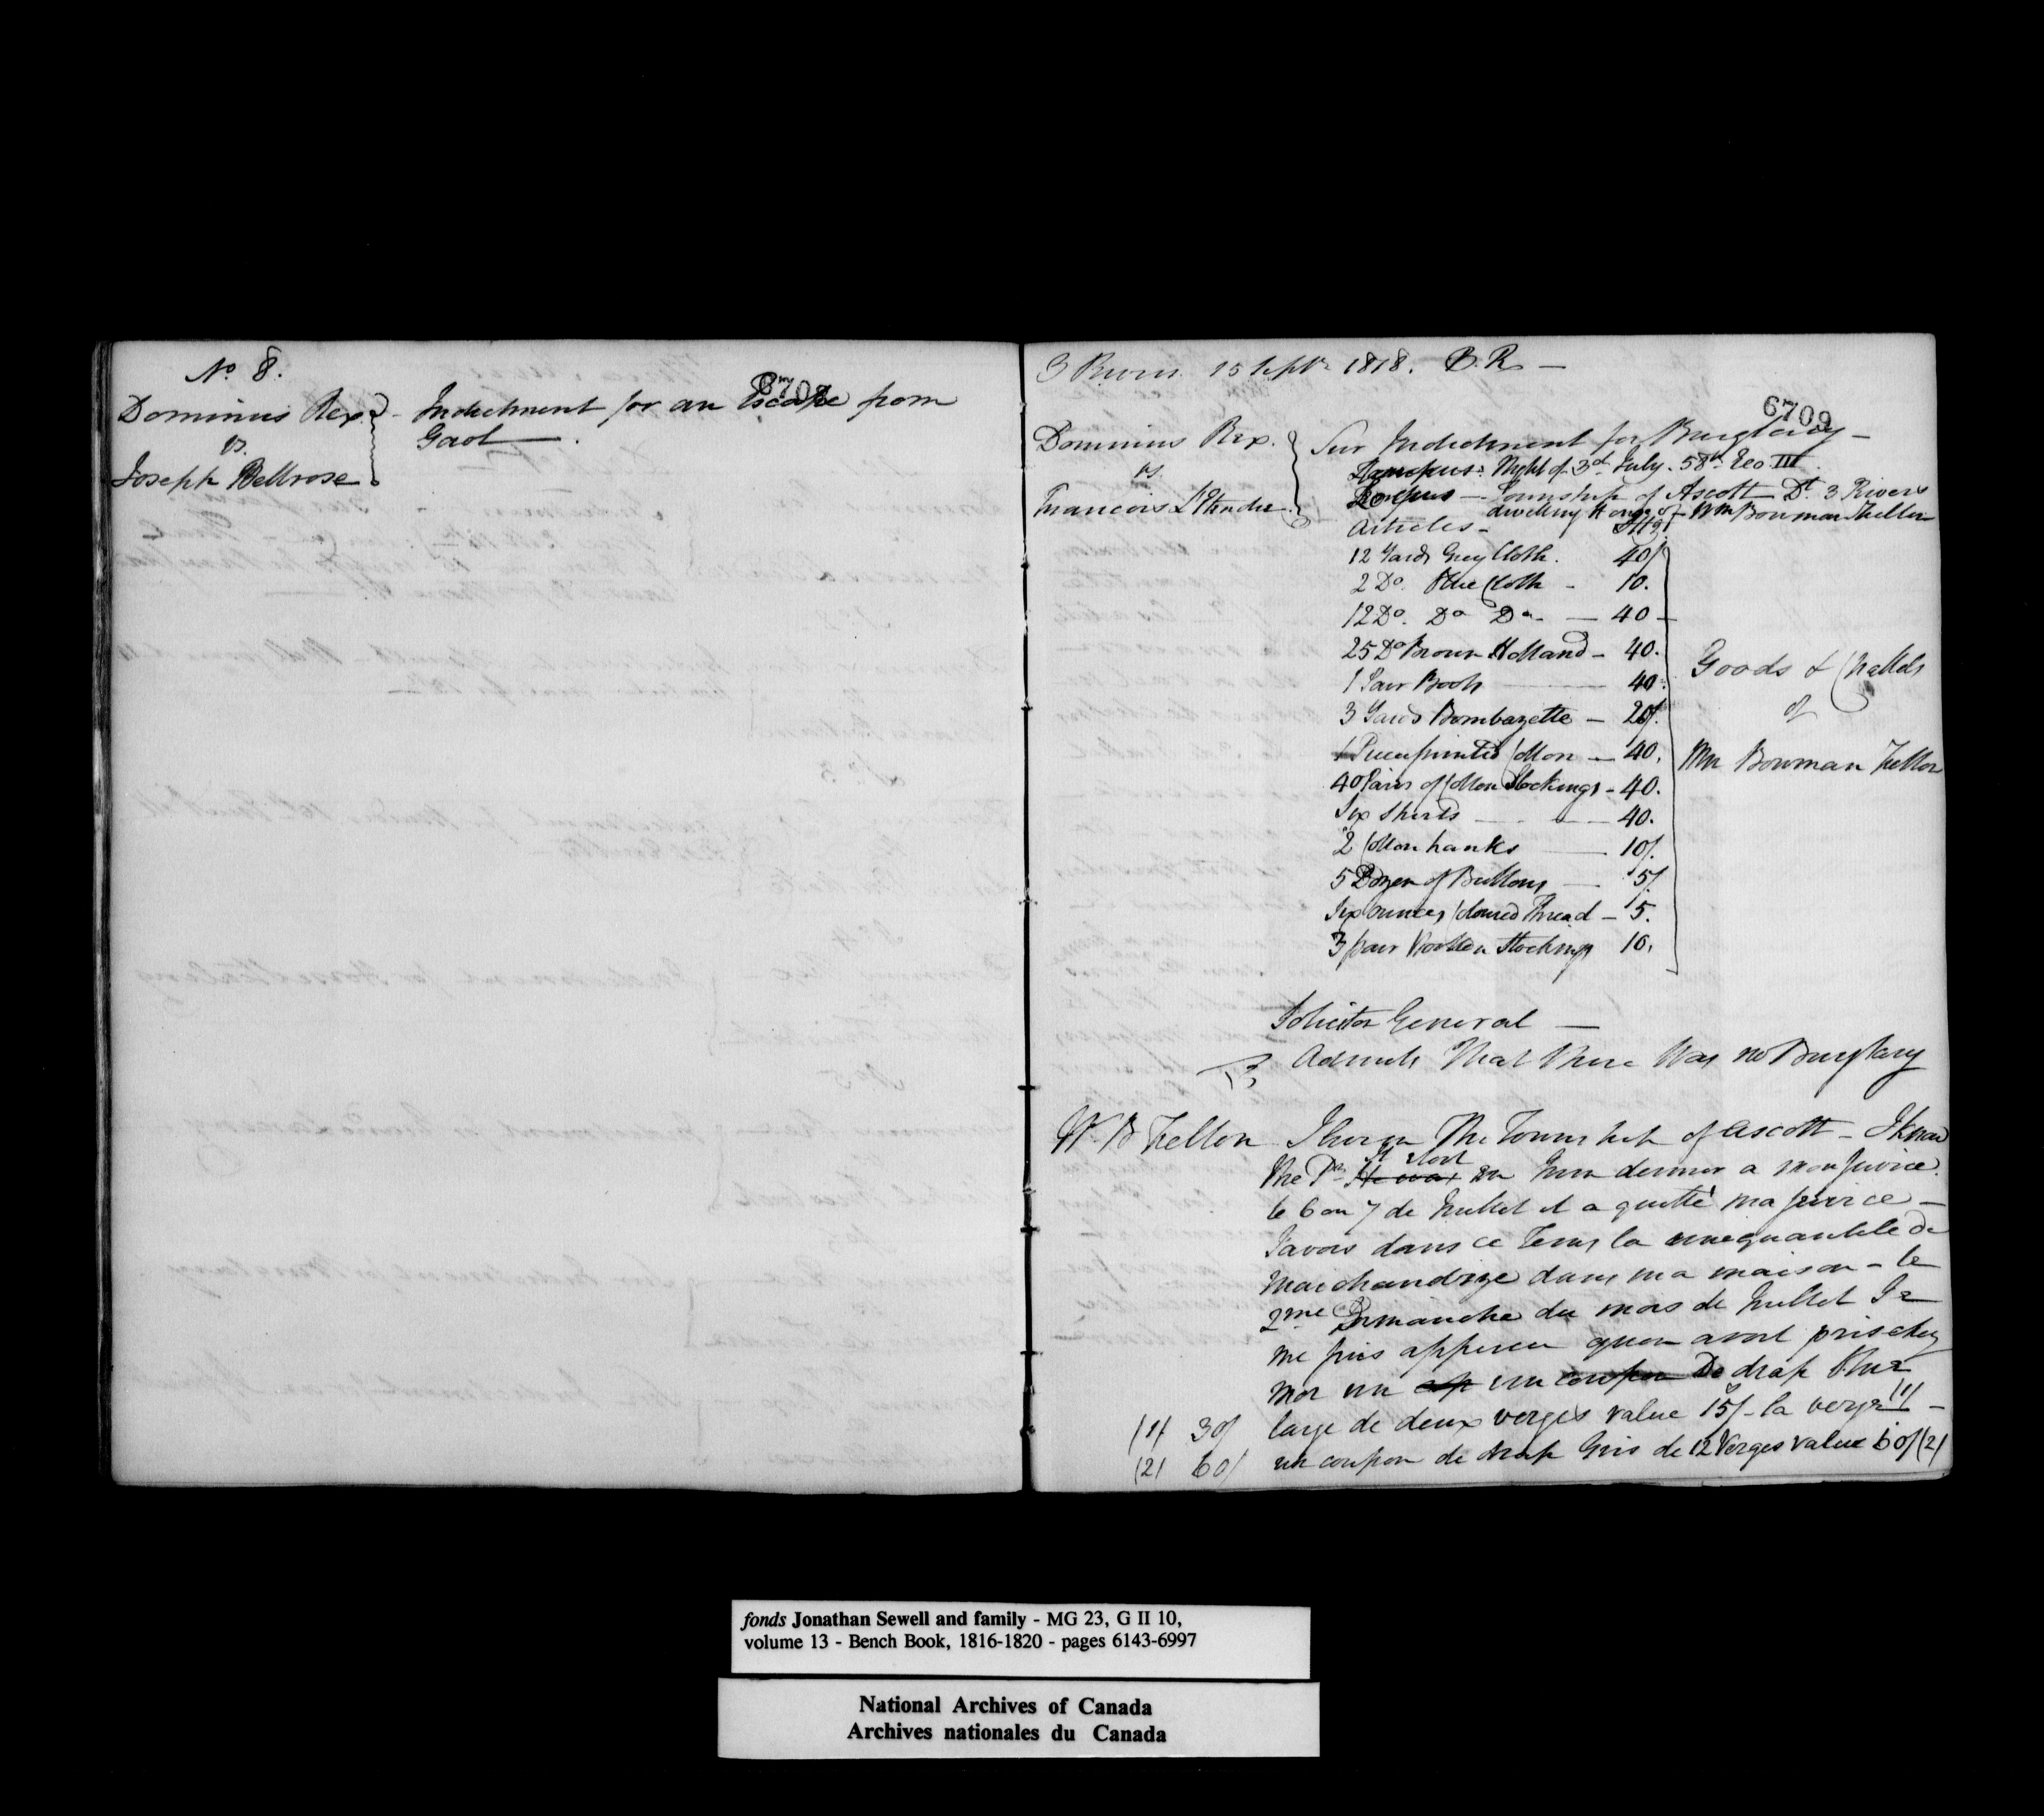 No. 8.
6708
Dominus Rex - Indictment for an Escape from
vs. Gaol.
Joseph Bellrose
3 Rivers 15 Septr 1818. B.R. —
6709
Dominus Rex. Sur Indictment for Burglary —
vs. Tempus: Night of 3d July. 58th Geo III.
Francois Locus — Township of Ascott Dt. 3 Rivers
dwelling House of Wm Bowman Felton
Articles -
12 Yards Grey Cloth. 40/
2 Do. Blue Cloth - 10.
12 Do. Do Do - — 40 -
25 Do Brown Holland - 40.
1 Pair Boots — 40.
3 Yards Bombazette — 20/.
1 Piece printed Cotton — 40.
40 Pairs of Cotton Stockings - 40.
Six Shirts — 40.
2 Cotton hanks — 10/.
5 Dozen of Buttons — 5/
Six ounces Coloured Thread - 5.
3 pair Woollen Stockings 10.
Goods & Chattels
of
Wm Bowman Felton
Solicitor General —
Admits that there was no Burglary
W. B Felton I live in the Township of Ascott - I know
the Pr. He was Il etoit en Juin dernier a mon service.
le 6 ou 7 de Juillet il a quitté ma service —
J'avois dans ce tems la une quantite de
Marchandize dans ma maison - le
2me Dimanche du mois de Juillet Je
me suis apperçu quon avoit pris chez
moi un cop un coupon De drap blue
(1) 30/ large de deux verges value 15/- la verge (1) -
(2) 60/ un coupon de drap Gris de 12 Verges value 60/ (2)
fonds Jonathan Sewell and family - MG 23, G II 10,
volume 13 - Bench Book, 1816-1820 - pages 6143-6997
National Archives of Canada
Archives nationales du Canada